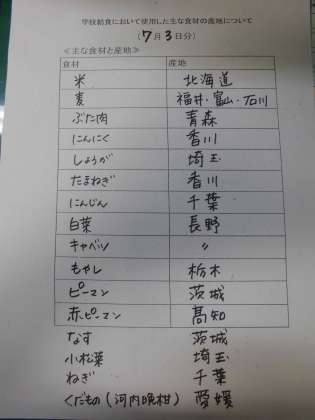 学校給食において使用した主な食材の産地について
(7月3日分)
≪主な食材と産地≫
食材 産地
米 北海道
麦 福井・富山・石川
ぶた肉 青森
にんにく 香川
しょうが 埼玉
たまねぎ 香川
にんじん 千葉
白菜 長野
キャベツ 〃
もやし 栃木
ピーマン 茨城
赤ピーマン 高知
なす 茨城
小松菜 埼玉
ねぎ 千葉
くだもの(河内晩柑) 愛媛